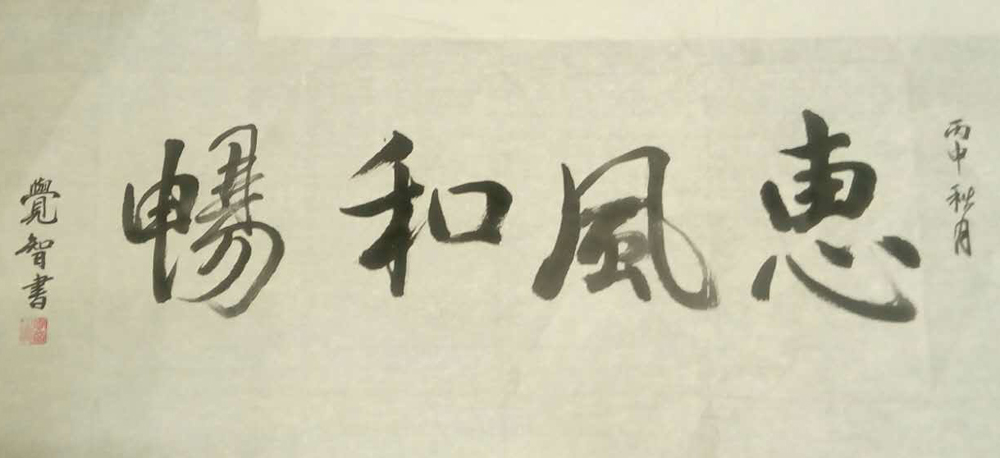 丙申秋月
惠風和暢
覺智書